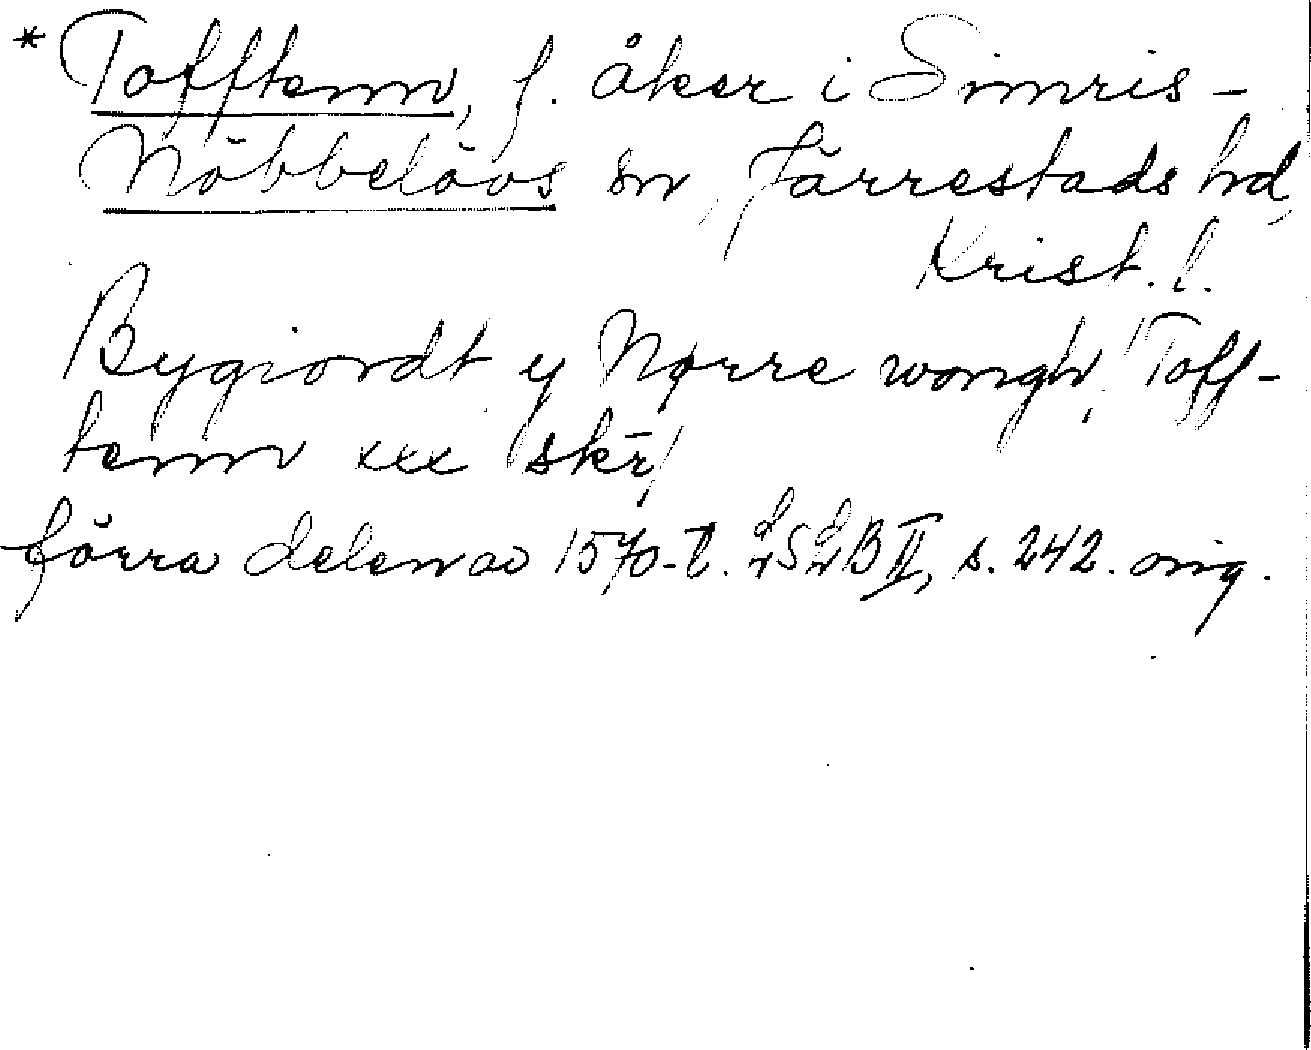 * Tofftenn, f. åker i Simris-
Nöbbelövs sn, Järrestads hd,
Krist. l.
Bygiordt y Nørre wongh, Toff-
tenn xxx skr/
förra delen av 1570-t. LSLB II, s. 242. orig.